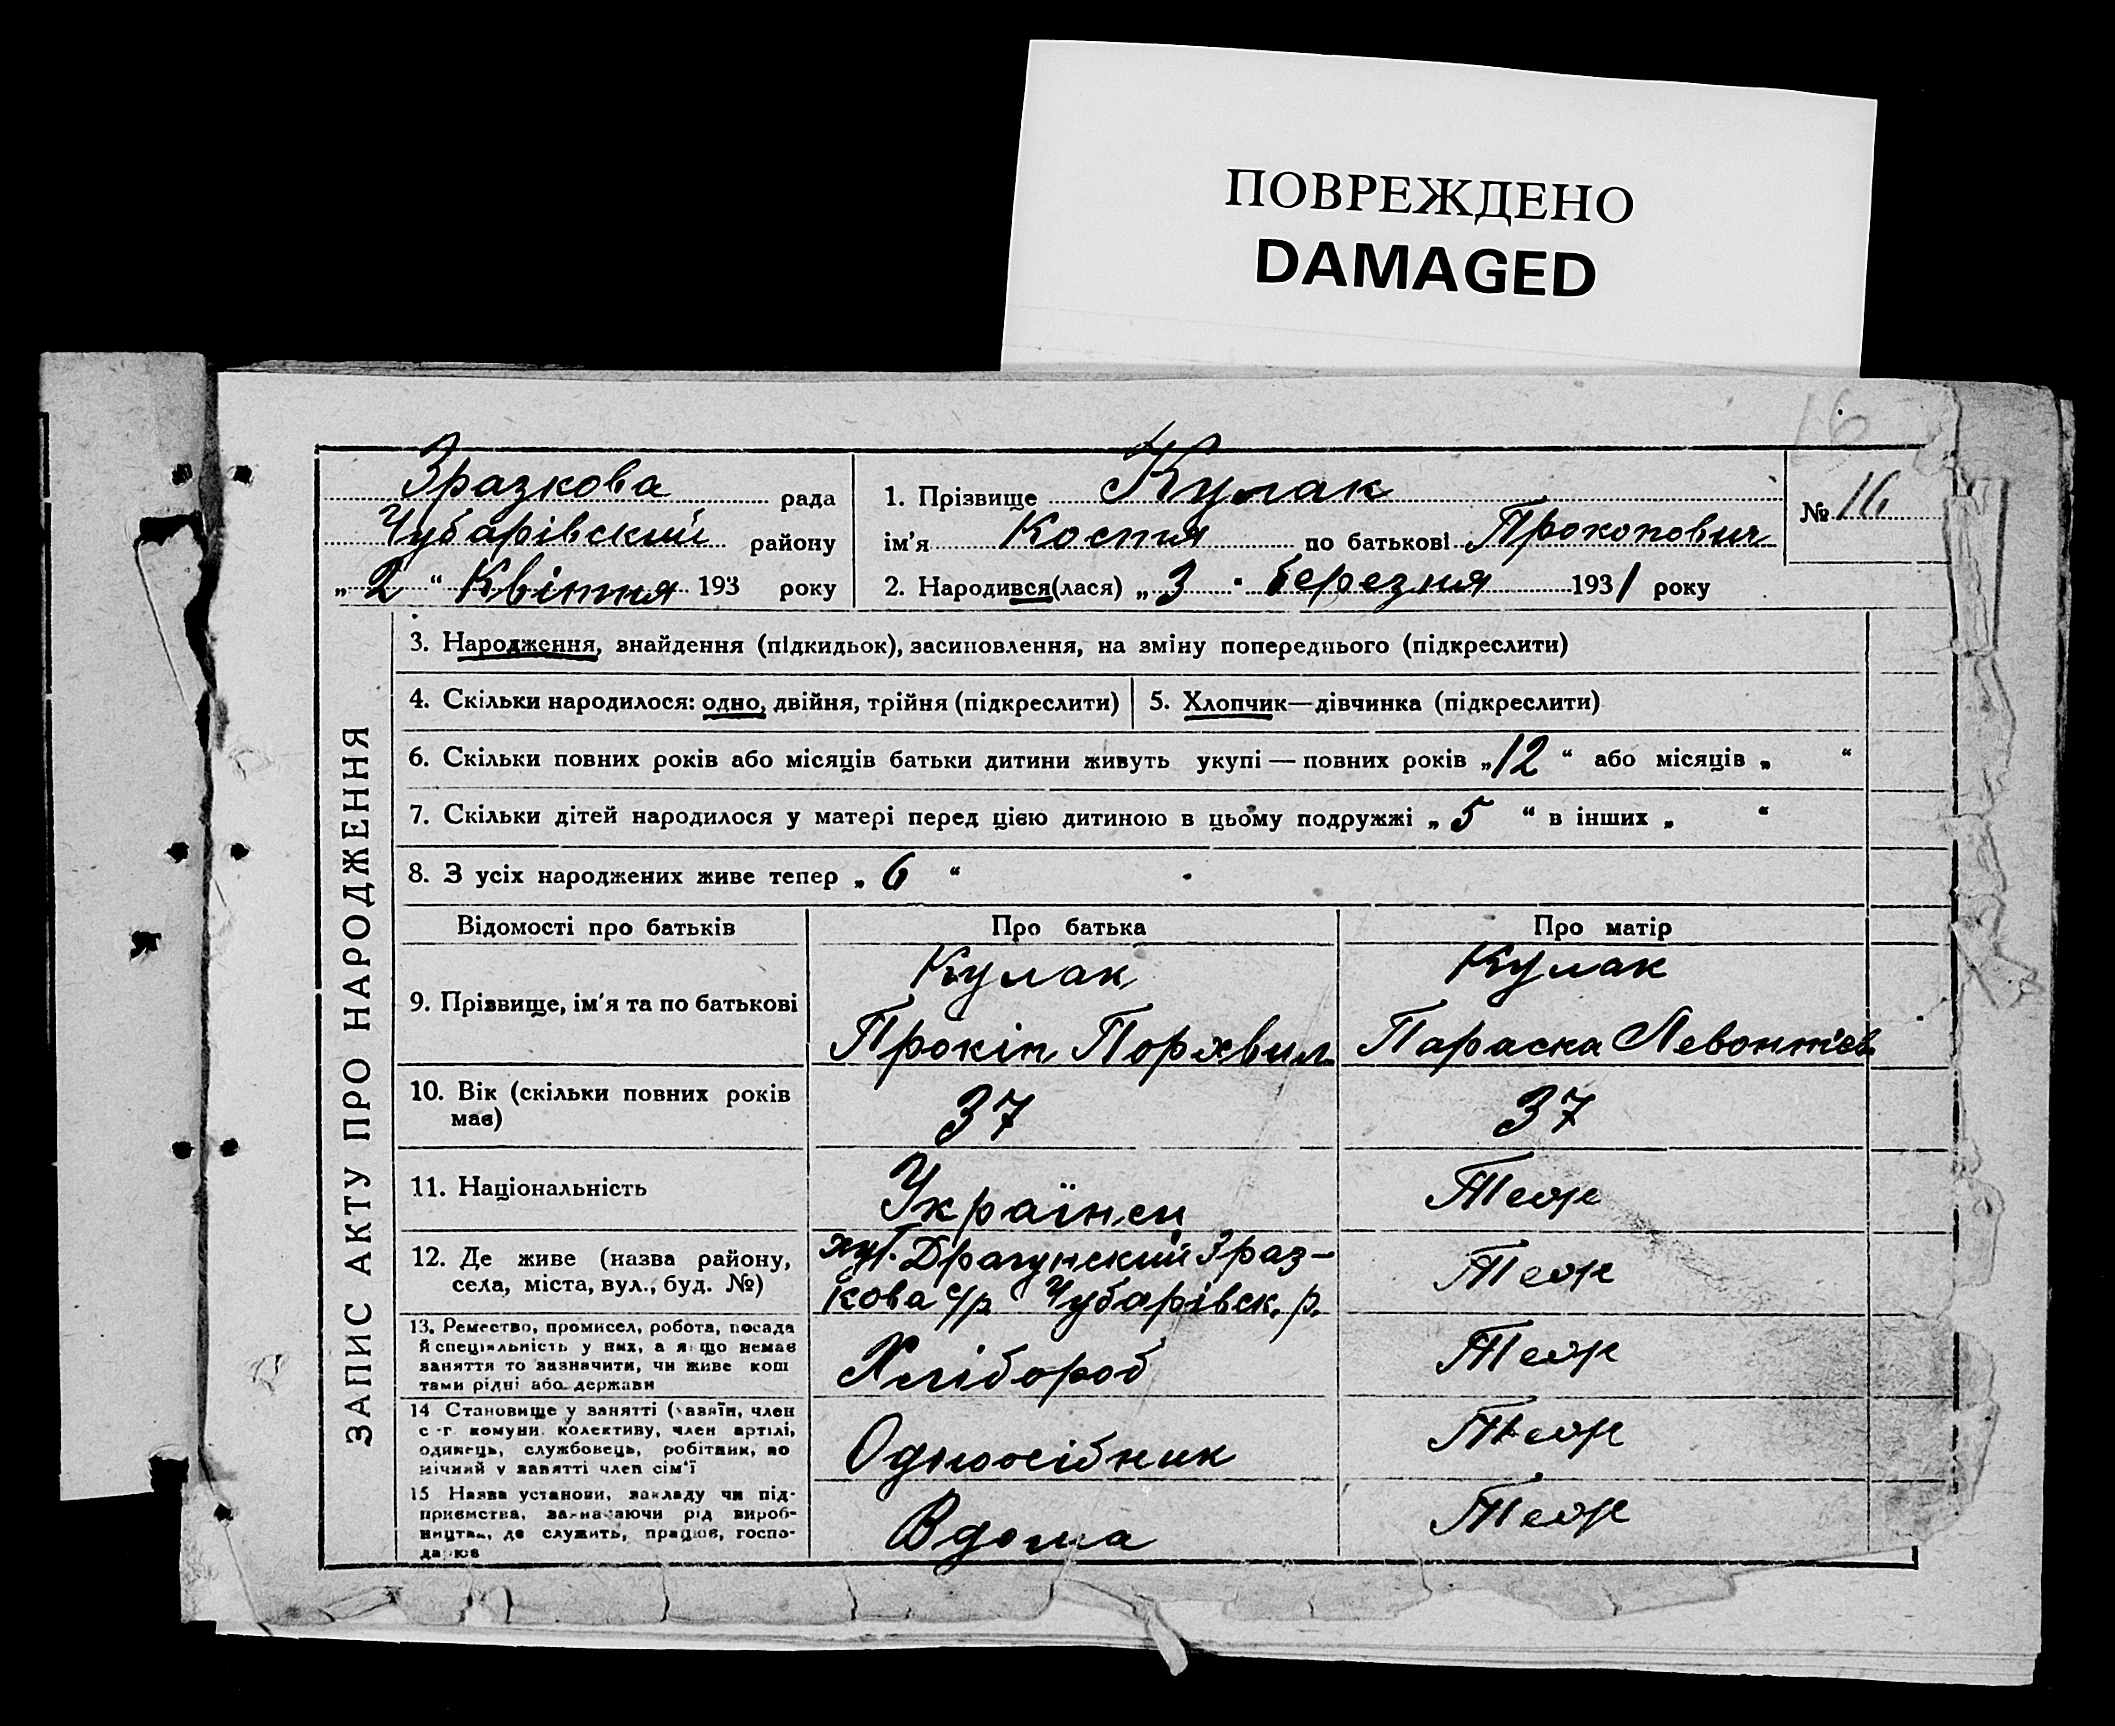 ПОВРЕЖДЕНО
DAMAGED
16
Зразкова рада
Чубарівский району
„2“ Квітня 193 року
1. Прізвище Кулак
ім'я Костя по батькові Прокопович
2. Народився(лася) „3 Березня 1931 року
№ 16
ЗАПИС АКТУ ПРО НАРОДЖЕННЯ
3. Народження, знайдення (підкидьок), засиновлення, на зміну попереднього (підкреслити)
4. Скільки народилося: одно, двійня, трійня (підкреслити)
5. Хлопчик—дівчинка (підкреслити)
6. Скільки повних років або місяців батьки дитини живуть укупі — повних років „12“ або місяців „ “
7. Скільки дітей народилося у матері перед цією дитиною в цьому подружжі „5“ в інших „ “
8. З усіх народжених живе тепер „6“
Відомості про батьків
Про батька
Про матір
9. Прізвище, ім'я та по батькові
Кулак
Прокіп
Кулак
Параска Левонтіев.
10. Вік (скільки повних років
має)
37
37
11. Національність
Українец
Теж
12. Де живе (назва району,
села, міста, вул., буд. №)
хут. Драгунский Зраз-
кова с/р Чубарівск. р.
Теж
13. Ремество, промисел, робота, посада
й спеціяльність у них, а якщо немає
заняття то зазначити, чи живе кош
тами рідні або держави
Хлібороб
Теж
14 Становище у занятті (хазяїн, член
с-г комуни, колективу, член артілі,
одинець, службовець, робітник, по
мічний у занятті член сім'ї
Одноосібник
Теж
15 Назва установи, закладу чи під-
приємства, зазначаючи рід вироб-
ництва, де служить, працює, госпо-
дарює
Вдома
Теж